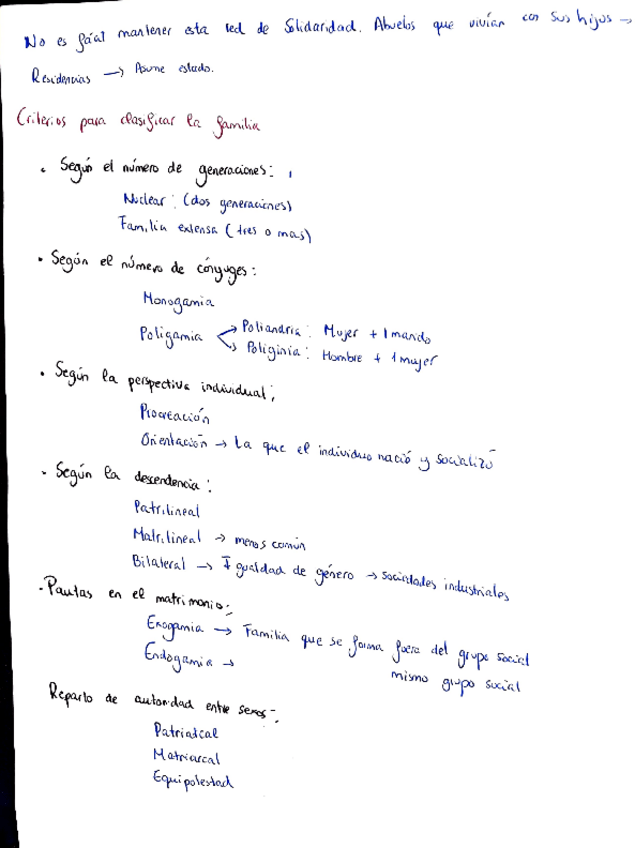 No es fácil mantener esta red de Solidaridad. Abuelos que vivían con sus hijos →
Residencias → Asume estado.
Criterios para clasificar la familia
• Según el número de generaciones:
Nuclear: (dos generaciones)
Familia extensa (tres o mas)
• Según el número de cónyuges:
Monogamia
Poligamia → Poliandria: Mujer + 1 marido
→ Poliginia: Hombre + 1 mujer
• Según la perspectiva individual;
Procreación
Orientación → La que el individuo nació y socializó
• Según la descendencia:
Patrilineal
Matrilineal → menos común
Bilateral → Igualdad de género → Sociedades industriales
• Pautas en el matrimonio:
Exogamia → Familia que se forma fuera del grupo social
Endogamia → mismo grupo social
Reparto de autoridad entre sexos:
Patriarcal
Matriarcal
Equipolestad